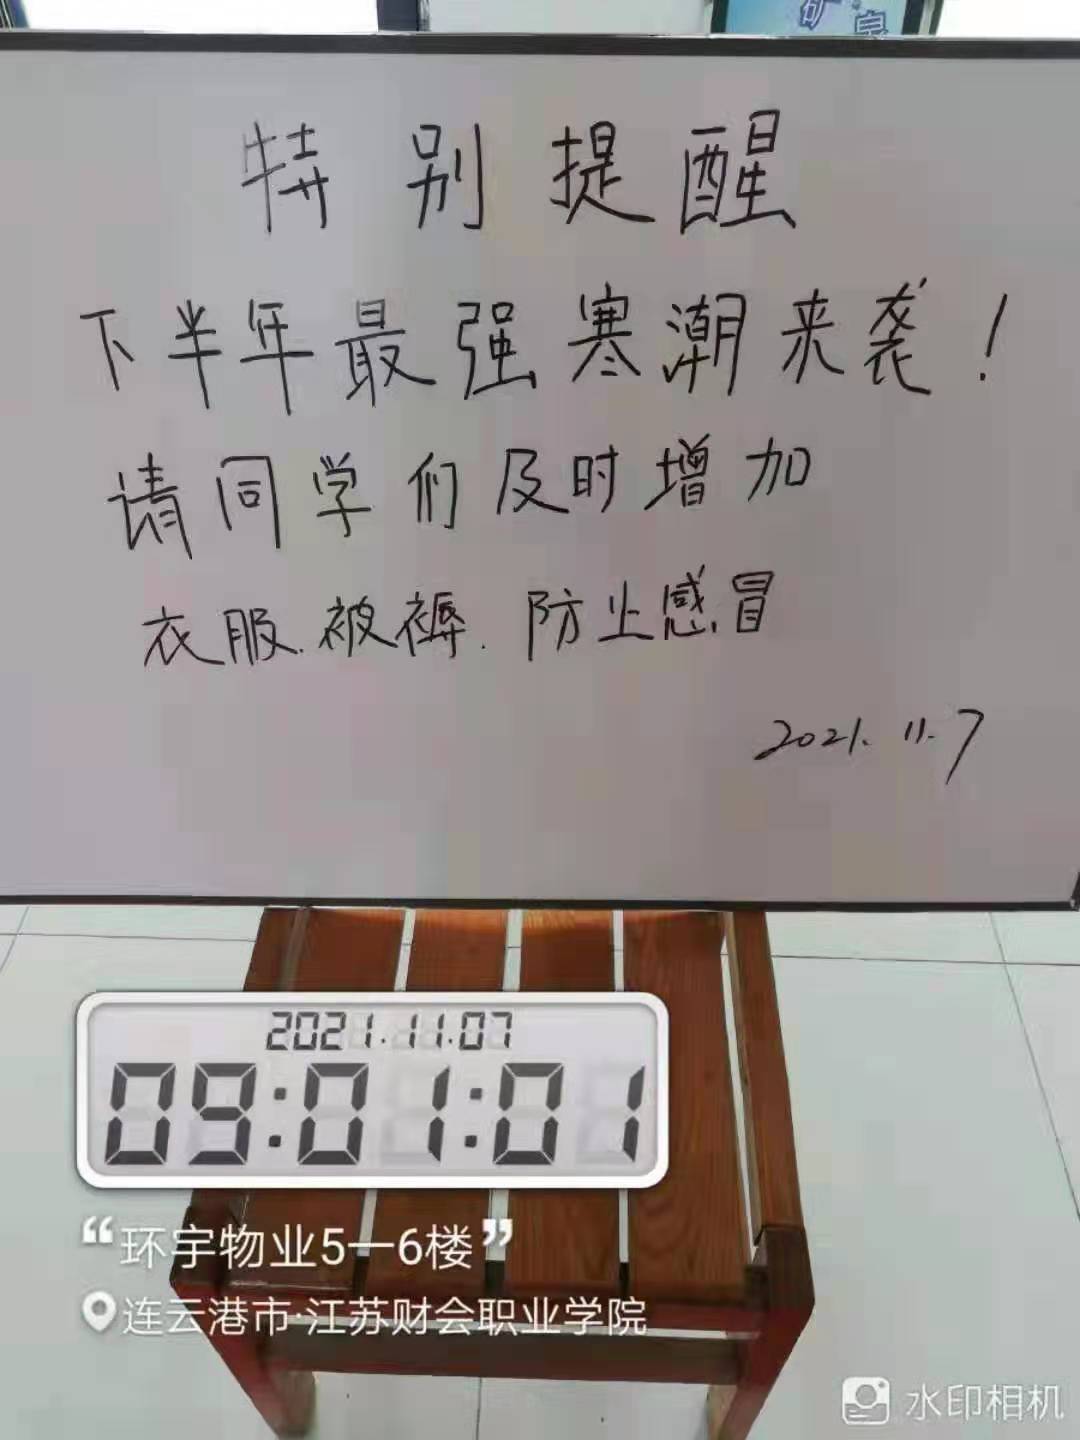 矿泉
特别提醒
下半年最强寒潮来袭！
请同学们及时增加
衣服.被褥.防止感冒
2021.11.7
2021.11.07
09:01:01
“环宇物业5一6楼”
连云港市·江苏财会职业学院
水印相机